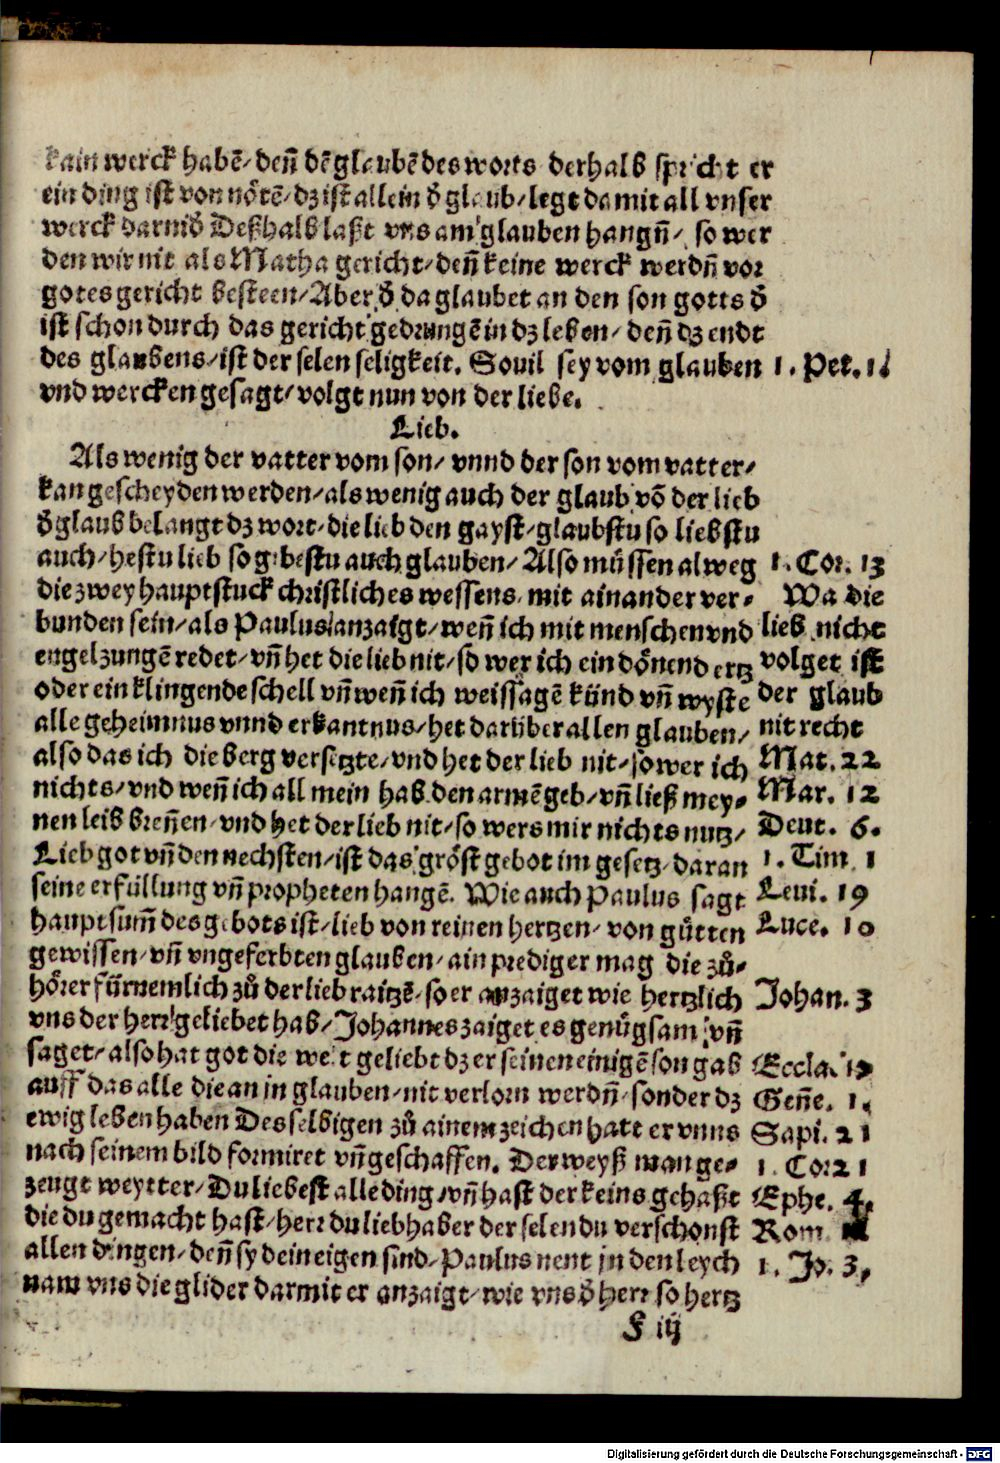 kain werck habē/ deñ dē glaubē des worts derhalb spricht er
ein ding ist von nötē/ dz ist allein ð glaub/ legt damit all vnser
werck darnið Deßhalb laßt vns am glauben hangñ/ so wer
den wir nit als Matha gericht/ deñ keine werck werdñ vor
gotes gericht besteen/ Aber ð da glaubet an den son gotts ð
ist schon durch das gericht gedrungē in dz leben/ deñ dz endt
des glaubens/ ist der selen seligkeit. Souil sey vom glauben 1. Pet. 1
vnd wercken gesagt/ volgt nun von der liebe.
Lieb.
Als wenig der vatter vom son/ vnnd der son vom vatter/
kan gescheyden werden/ als wenig auch der glaub võ der lieb
ð glaub belangt dz wort/ die lieb den gayst/ glaubstu so liebstu
auch/ hestu lieb so gebestu auch glauben/ Also müssen alweg 1. Cor. 13
die zwey hauptstuck christliches wessens/ mit ainander ver- Wa die
bunden sein/ als Paulus anzaigt/ weñ ich mit menschen vnd lieb nicht
engelzungē redet/ vñ het die lieb nit/ so wer ich ein dönend ertz volget ist
oder ein klingende schell vñ weñ ich weissagē künd vñ wyste der glaub
alle geheimnus vnnd erkantnus/ het darüber allen glauben/ nit recht
also das ich die berg versetzte/ vnd het der lieb nit/ so wer ich Mat. 22
nichts/ vnd weñ ich all mein hab den armē geb/ vñ ließ mey- Mar. 12
nen leib breñen/ vnd het der lieb nit/ so wers mir nichts nutz/ Deut. 6.
Lieb got vñ den nechsten/ ist das gröst gebot im gesetz/ daran 1. Tim. 1
seine erfüllung vñ propheten hangē. Wie auch Paulus sagt Leui. 19
hauptsum̃ des gebots ist/ lieb von reinen hertzen/ von gůtten Luce. 10
gewissen/ vñ vngeferbten glauben/ ain prediger mag die zů-
hörer fürnemlich zů der lieb raitzē/ so er anzaiget wie hertzlich Johan. 3
vns der herr geliebet hab/ Johannes zaiget es genůgsam vñ
saget/ also hat got die welt geliebt dz er seinen einigē son gab Eccla.
auff das alle die an in glauben/ nit verlorn werdñ/ sonder dz Geñe. 1.
ewig leben haben Desselbigen zů ainem zeichen hatt er vnns Sapi. 21
nach seinem bild formiret vñ geschaffen. Der weyß man ge- 1. Cor 21
zeugt weytter/ Du liebest alle ding/ vñ hast der keins gehaßt Ephe. 4.
die du gemacht hast/ herr du liebhaber der selen du verschonst Rom
allen dingen/ deñ sy dein eigen sind/ Paulus nent in den leych 1. Jo. 3.
nam vns die glider darmit er anzaigt/ wie vns ð herr so hertz
F iij
Digitalisierung gefördert durch die Deutsche Forschungsgemeinschaft - DFG